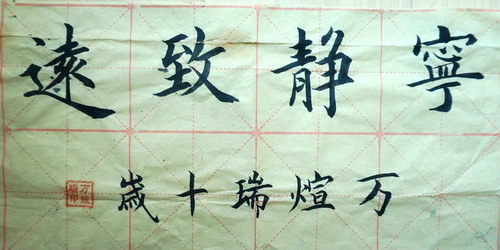 寧静致遠
万煊瑞十歲